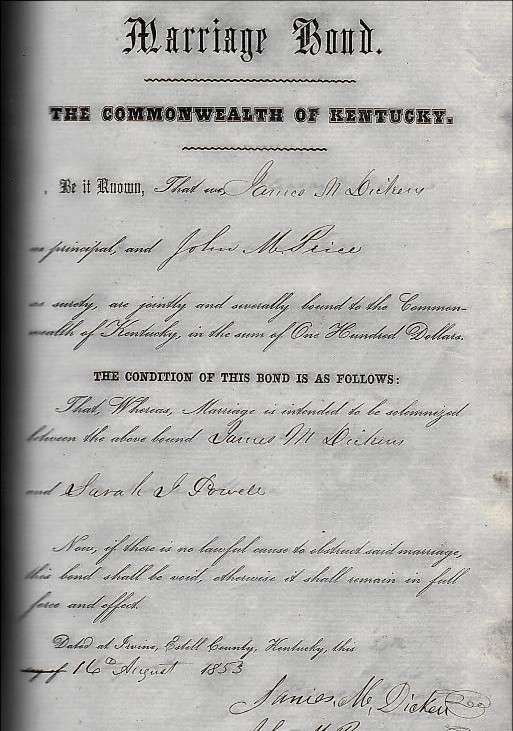 Marriage Bond.
THE COMMONWEALTH OF KENTUCKY.
Be it Known, That we, James M Dickens
as principal, and John M. Price
as surety, are jointly and severally bound to the Common-
wealth of Kentucky, in the sum of One Hundred Dollars.
THE CONDITION OF THIS BOND IS AS FOLLOWS:
That, Whereas, Marriage is intended to be solemnized
between the above bound James M Dickens
and Sarah J Powell
Now, if there is no lawful cause to obstruct said marriage,
this bond shall be void, otherwise it shall remain in full
force and effect.
Dated at Irvine, Estill County, Kentucky, this
16th August 1853
James M, Dicken
John M